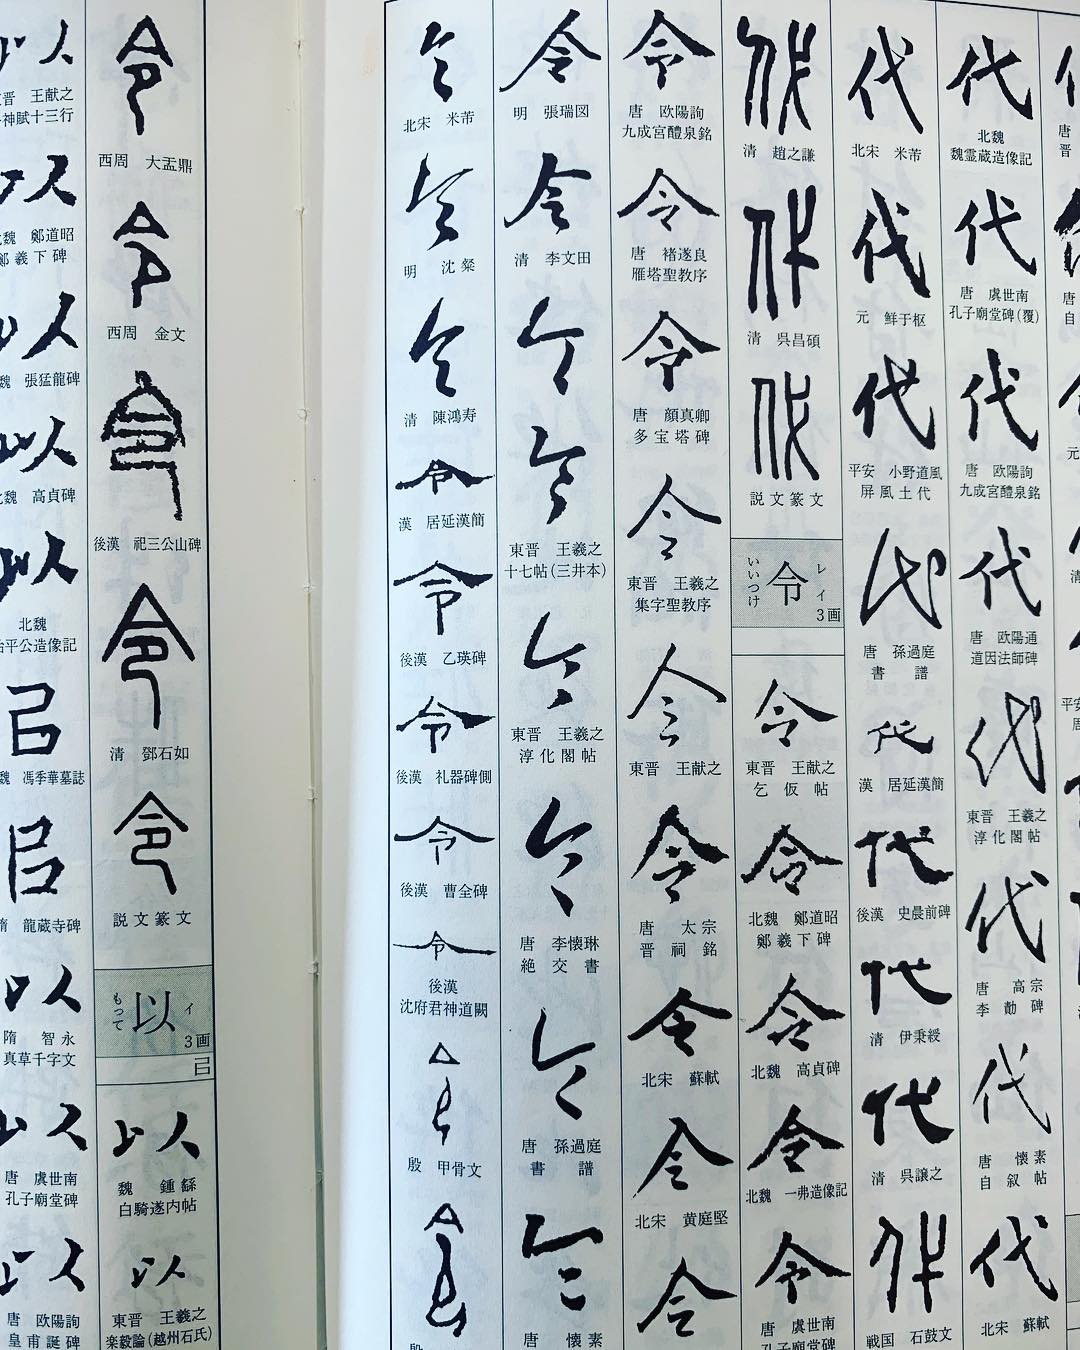 代
北魏
魏霊蔵造像記
代
唐 虞世南
孔子廟堂碑(覆)
代
唐 欧陽詢
九成宮醴泉銘
代
唐 欧陽通
道因法師碑
代
東晋 王羲之
淳化閣帖
代
唐 高宗
李勣碑
代
唐 懐素
自叙帖
代
北宋 蘇軾
代
北宋 米芾
代
元 鮮于枢
代
平安 小野道風
屏風土代
代
唐 孫過庭
書譜
代
漢 居延漢簡
代
後漢 史晨前碑
代
清 伊秉綬
代
清 呉譲之
代
戦国 石鼓文
代
清 趙之謙
代
清 呉昌碩
代
説文篆文
令
レイ
いいつけ
3画
令
東晋 王献之
乞仮帖
令
北魏 鄭道昭
鄭羲下碑
令
北魏 高貞碑
令
北魏 一弗造像記
令
唐 虞世南
孔子廟堂碑
令
唐 欧陽詢
九成宮醴泉銘
令
唐 褚遂良
雁塔聖教序
令
唐 顔真卿
多宝塔碑
令
東晋 王羲之
集字聖教序
令
東晋 王献之
令
唐 太宗
晋祠銘
令
北宋 蘇軾
令
北宋 黄庭堅
令
令
明 張瑞図
令
清 李文田
令
令
東晋 王羲之
十七帖(三井本)
令
東晋 王羲之
淳化閣帖
令
唐 李懐琳
絶交書
令
唐 孫過庭
書譜
令
唐 懐素
令
北宋 米芾
令
明 沈粲
令
清 陳鴻寿
令
漢 居延漢簡
令
後漢 乙瑛碑
令
後漢 礼器碑側
令
後漢 曹全碑
令
後漢
沈府君神道闕
令
殷 甲骨文
令
殷
令
西周 大盂鼎
令
西周 金文
令
後漢 祀三公山碑
令
清 鄧石如
令
説文篆文
以
イ
もって
3画
㠯
以
魏 鍾繇
白騎遂内帖
以
東晋 王羲之
楽毅論(越州石氏)
以
東晋 王献之
神賦十三行
以
魏 鄭道昭
鄭羲下碑
以
魏 張猛龍碑
以
北魏 高貞碑
以
北魏
始平公造像記
㠯
魏 馮季華墓誌
㠯
隋 龍蔵寺碑
以
隋 智永
真草千字文
以
唐 虞世南
孔子廟堂碑
以
唐 欧陽詢
皇甫誕碑